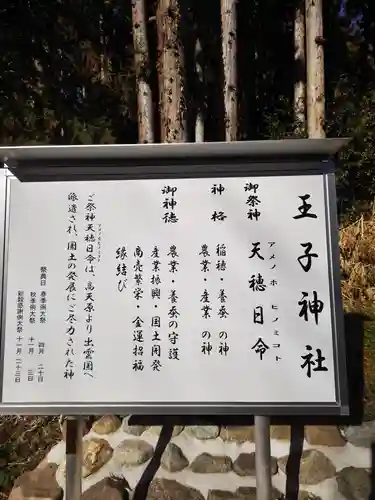 王子神社
御祭神　天穂日命
アメノホヒノミコト
神格　稲穂・養蚕の神
農業・産業の神
御神徳　農業・養蚕の守護
産業振興・国土開発
商売繁栄・金運招福
縁結び
ご祭神天穂日命は、高天原より出雲国へ
派遣され、国土の発展にご尽力された神
祭典日　春季例大祭　四月二十日
秋季例大祭　十一月三日
新穀感謝例大祭　十一月二十三日